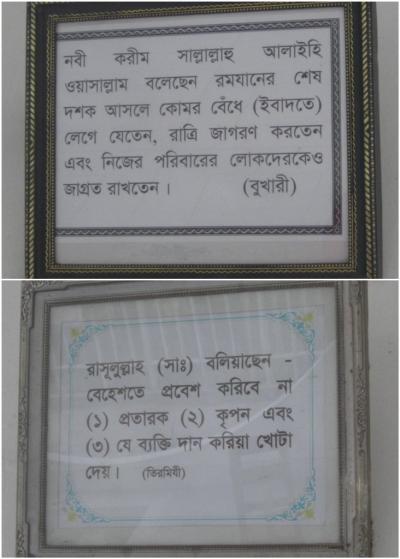 নবী করীম সাল্লাল্লাহু আলাইহি
ওয়াসাল্লাম বলেছেন রমযানের শেষ
দশক আসলে কোমর বেঁধে (ইবাদতে)
লেগে যেতেন, রাত্রি জাগরণ করতেন
এবং নিজের পরিবারের লোকদেরকেও
জাগ্রত রাখতেন। (বুখারী)
রাসূলুল্লাহ (সাঃ) বলিয়াছেন -
বেহেশতে প্রবেশ করিবে না
(১) প্রতারক (২) কৃপন এবং
(৩) যে ব্যক্তি দান করিয়া খোটা
দেয়। (তিরমিযী)